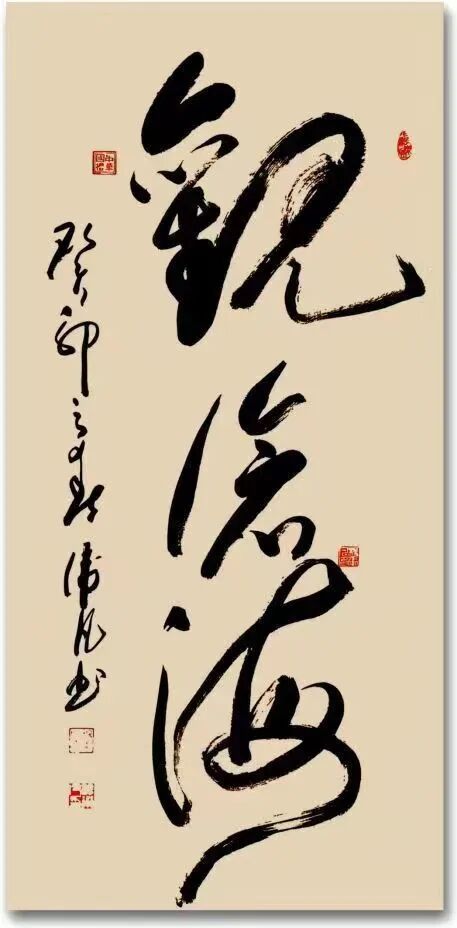 觀滄海
癸卯之春
書